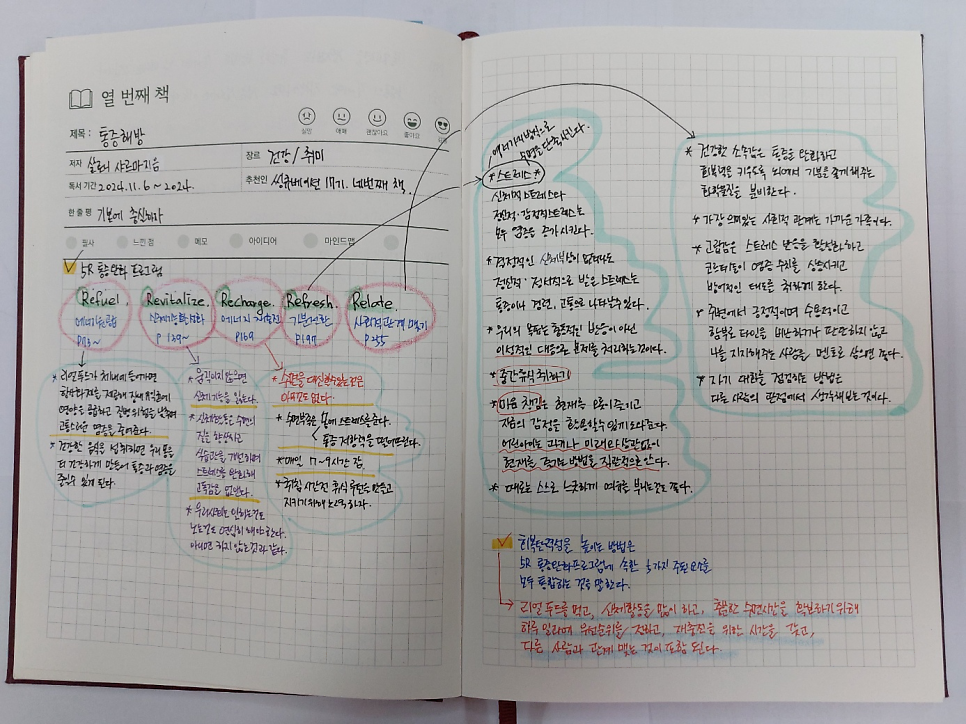 열 번째 책
실망 애매 괜찮아요 좋아요
제목 : 통증해방
저자
장르 건강 / 취미
독서 기간 2024.11.6 ~ 2024.
추천인 씽큐베이션 17기. 네번째 책.
한 줄 평 기본에 충실하라
필사 느낀 점 메모 아이디어 마인드맵
5R 통증완화 프로그램
Refuel. Revitalize. Recharge. Refresh. Relate.
에너지 기분전환 사회적 관계 맺기
p13~ p 139~ p169 p197 p 255
* 리얼푸드가 체내에 들어가면
영양을 공급하고 질병 위험을 낮추며
고통스러운 염증을 줄여준다.
* 건강한 음식을 섭취하면 우리 몸을
더 건강하게 만들어 통증과 염증을
줄일 수 있게 된다.
* 움직이지 않으면
신체기능을 잃는다.
* 신체활동은 수면의
질을 향상시키고
학습과 를 개선하며
스트레스를 완화해
고독감을 없앤다.
노는것도 열심히 해야 한다.
아니면 하지 않는것과 같다.
* 수면을 대신할수있는 것은
아무것도 없다.
* 수면부족은 몸에 스트레스를 준다.
통증 저항력을 떨어뜨린다.
* 매일 7~9시간 잠.
* 취침 시간전 휴식 루틴을 만들고
지키기 위해 노력하자.
여러가지 방식으로
수명을 단축시킨다.
* 스트레스 *
신체적 스트레스나
정신적 · 감정적 스트레스는
모두 염증을 증가시킨다.
* 결정적인 신체부상이 없더라도
정신적 · 정서적으로 받은 스트레스는
통증이나 경련, 고통으로 나타날 수 있다.
* 우리의 목표는 충동적인 반응이 아닌
이성적인 대응으로 문제를 처리하는것이다.
* 중간 휴식 취하기
* 마음 챙김은 현재를 으로 이끌고
지금의 감정을 할수있게 도와준다.
어린아이는 과거나 미래와 상관없이
현재를 즐기는 방법을 직관적으로 안다.
* 때로는 스스로 느긋하게 여유를 부리는것도 좋다.
* 건강한 소속감은 통증을 완화하고
회복력을 키우도록 뇌에서 기분을 좋게 해주는
화학물질을 분비한다.
* 가장 의미있는 사회적 관계는 가까운 가족이다.
* 고립감은 스트레스 반응을 활성화하고
코르티솔이 염증 수치를 상승시키고
방어적인 태도를 취하게 한다.
* 주변에서 긍정적이며 수용적이고
함부로 타인을 비난하거나 판단하지 않고
나를 지지해주는 사람을 멘토로 삼으면 좋다.
* 자기 대화를 점검하는 방법은
다른 사람의 관점에서 생각해보는 것이다.
회복탄력성을 높이는 방법은
5R 통증완화프로그램에 속한 5가지 주된 요소를
모두 통합하는 것을 말한다.
리얼 푸드를 먹고, 신체활동을 많이 하고, 충분한 수면시간을 확보하기 위해
하루 일과에 우선순위를 정하고, 재충전을 위한 시간을 갖고,
다른 사람과 관계 맺는 것이 포함 된다.